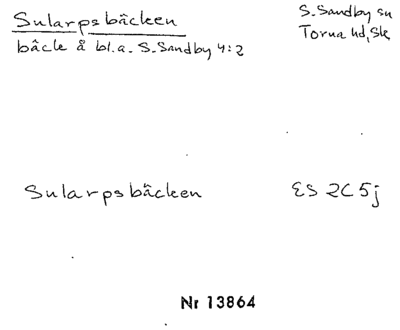 Sularpsbäcken
S. Sandby sn
Torna hd, Sk
bäck å bl.a. S. Sandby 4:2
Sularpsbäcken
ES 2C5j
Nr 13864